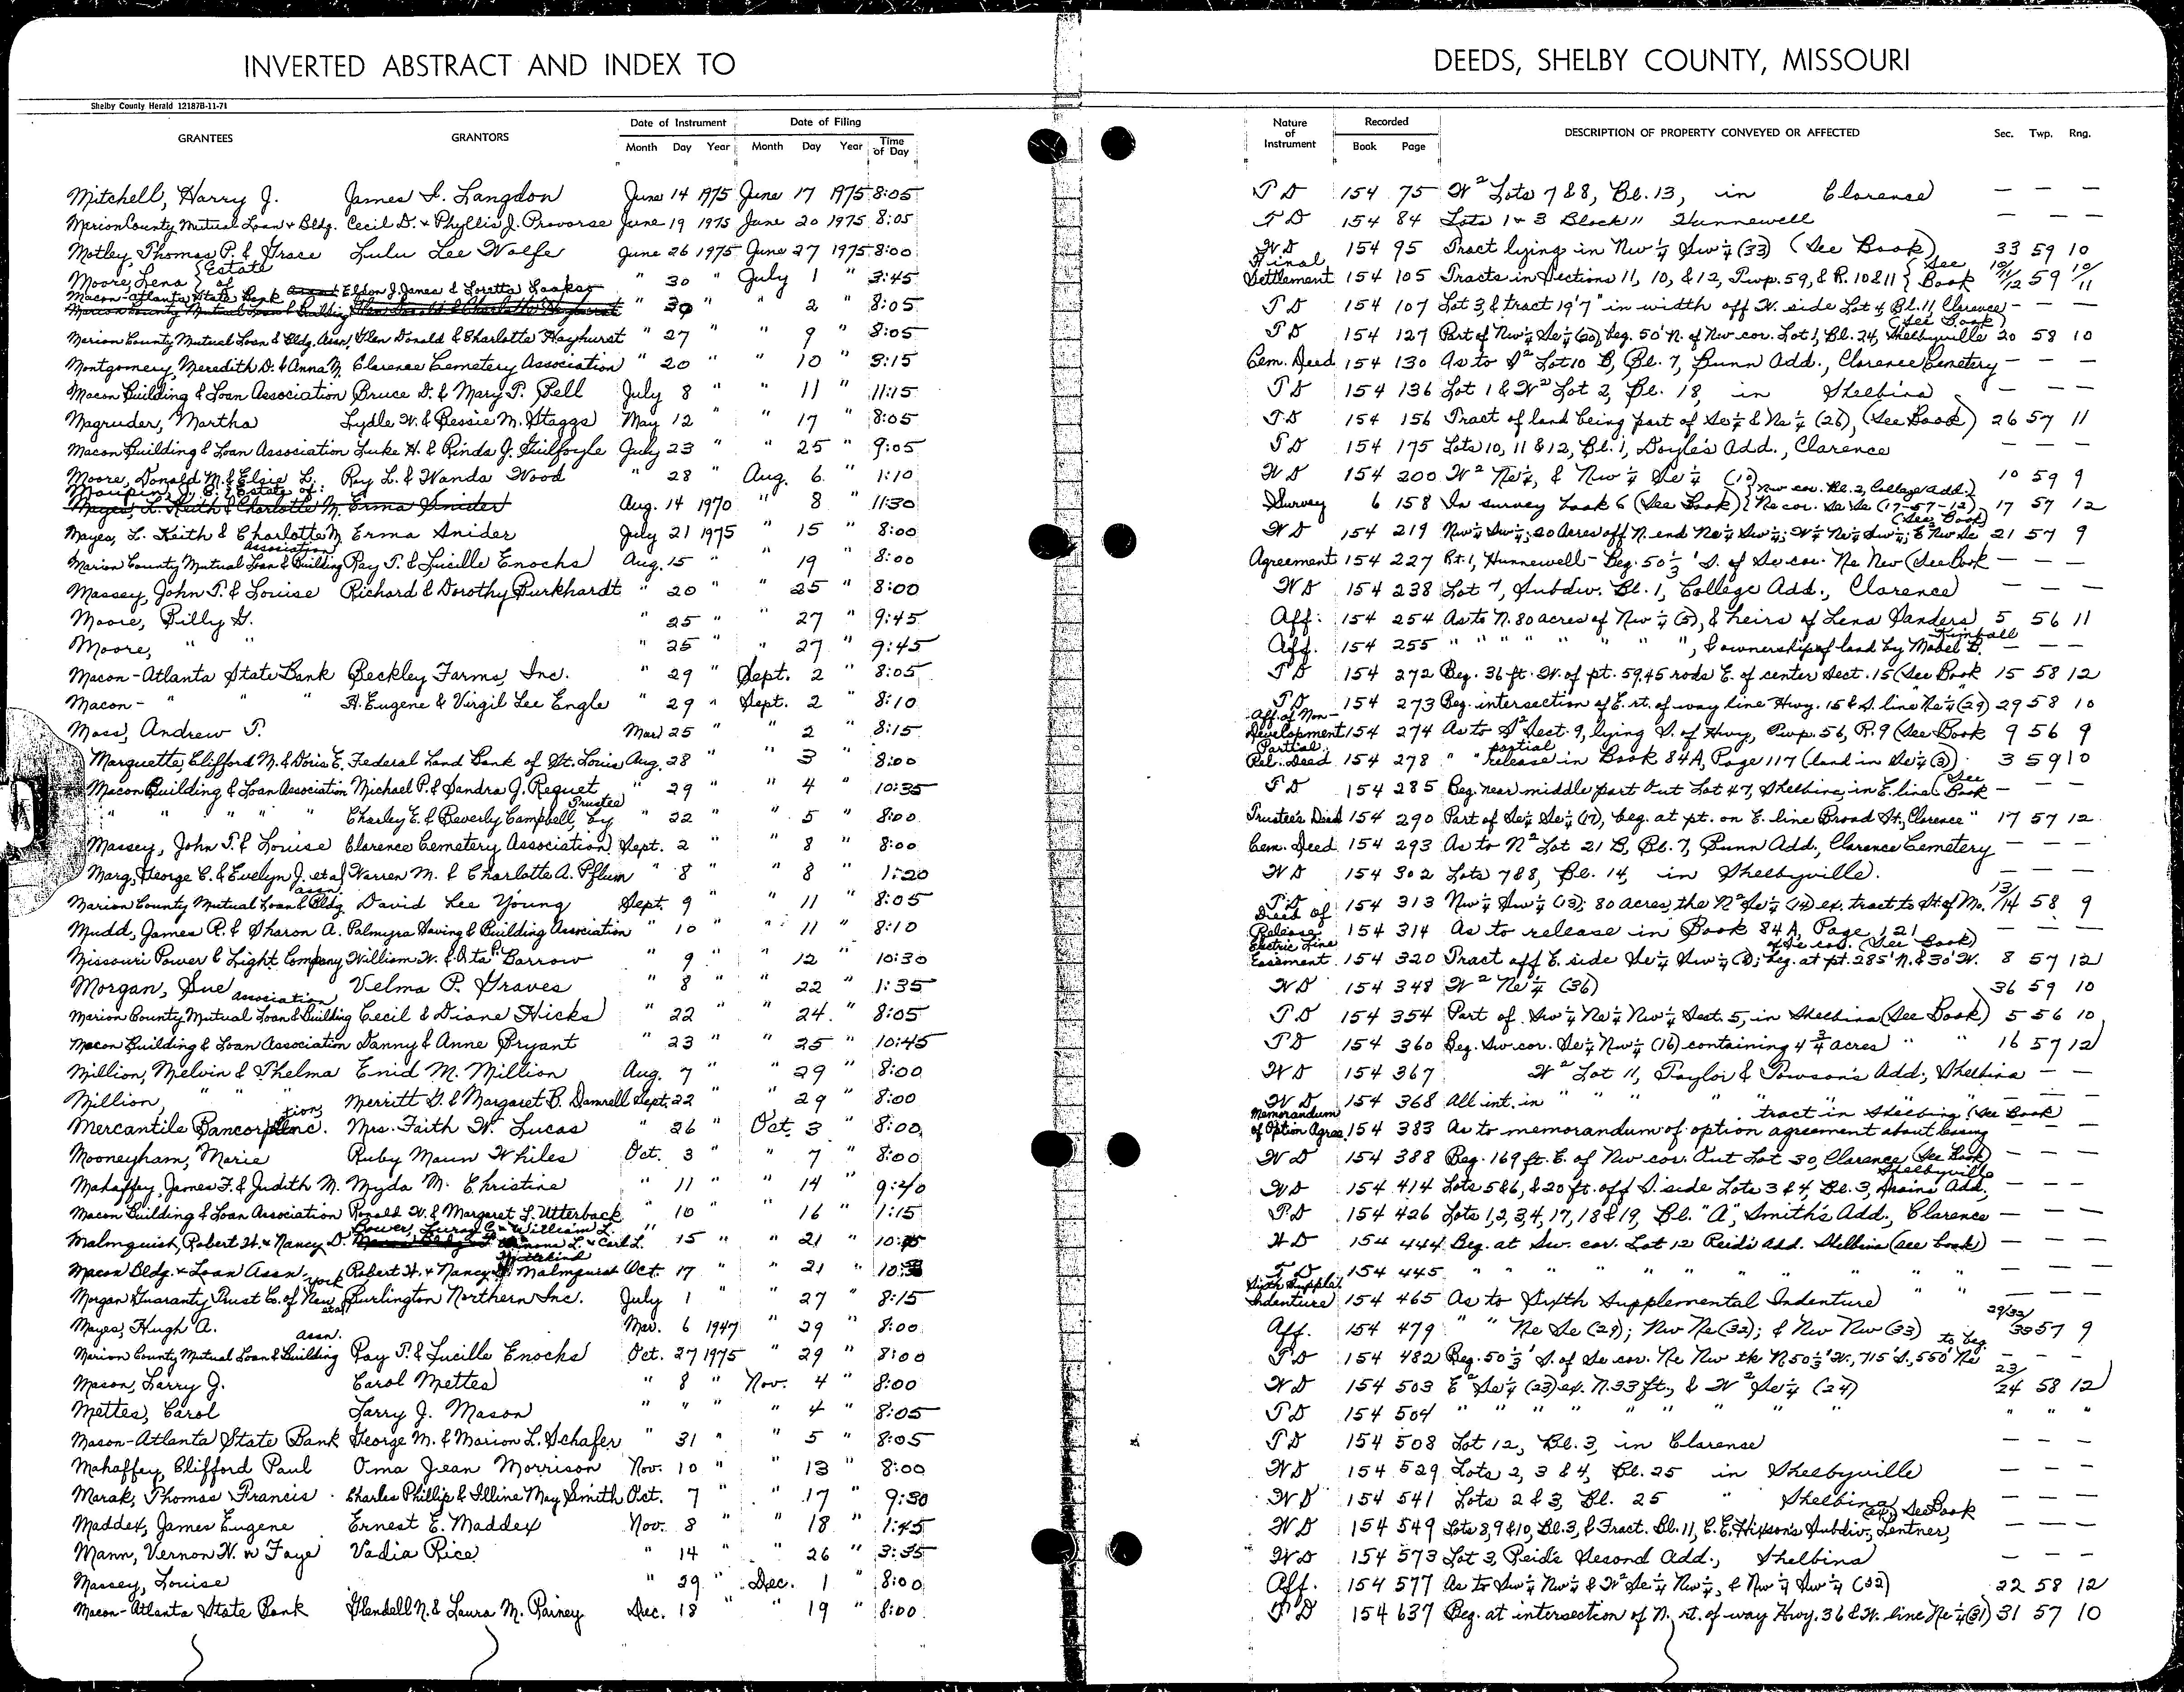 INVERTED ABSTRACT AND INDEX TO DEEDS, SHELBY COUNTY, MISSOURI
Shelby County Herald 12187B-11-71
GRANTEES GRANTORS Date of Instrument Month Day Year Date of Filing Month Day Year Time of Day Nature of Instrument Recorded Book Page DESCRIPTION OF PROPERTY CONVEYED OR AFFECTED Sec. Twp. Rng.
Mitchell, Harry J. James I. Langdon June 14 1975 June 17 1975 8:05 T D 154 75 W² Lots 7 & 8, Bl. 13, in Clarence — — —
Marion County Mutual Loan & Bldg. Cecil D. & Phyllis J. Provorse June 19 1975 June 20 1975 8:05 T D 154 84 Lots 1 & 3 Block 11 Hunnewell — — —
Motley, Thomas P. & Grace Lulu Lee Wolfe June 26 1975 June 27 1975 8:00 W D 154 95 Tract lying in Nw ¼ Sw ¼ (33) (See Book) 33 59 10
Moore, Lena } Estate of " 30 " July 1 " 3:45 Final Settlement 154 105 Tracts in Sections 11, 10, & 12, Twp. 59, & R. 10 & 11 { See Book 10/11/12 59 10/11
Macon-Atlanta State Bank Eldon J. James & Loretta Looker " 30 " " 2 " 8:05 T D 154 107 Lot 3, & tract 19'7" in width off W. side Lot 4 Bl. 11, Clarence — — —
Marion County Mutual Loan & Bldg. Assn. Glen Donald & Charlotte Hayhurst " 27 " " 9 " 8:05 T D 154 127 Part of Nw¼ Se¼ (20), beg. 50' N. of Nw cor. Lot 1, Bl. 24, Shelbyville (See Book) 20 58 10
Montgomery, Meredith D. & Anna M. Clarence Cemetery Association " 20 " " 10 " 3:15 Cem. Deed 154 130 As to S² Lot 10 B, Bl. 7, Bunn Add., Clarence Cemetery — — —
Macon Building & Loan Association Bruce D. & Mary P. Bell July 8 " " 11 " 11:15 T D 154 136 Lot 1 & W² Lot 2, Bl. 18, in Shelbina — — —
Magruder, Martha Lydle W. & Bessie M. Staggs May 12 " " 17 " 8:05 T D 154 156 Tract of land being part of Se¼ & Ne¼ (26), (See Book) 26 57 11
Macon Building & Loan Association Luke H. & Rinda J. Guilfoyle July 23 " " 25 " 9:05 T D 154 175 Lots 10, 11 & 12, Bl. 1, Doyle's Add., Clarence — — —
Moore, Donald M. & Elsie L. Roy L. & Wanda Wood " 28 " Aug. 6 " 1:10 W D 154 200 W² Ne¼, & Nw ¼ Se ¼ (10) 10 59 9
Maupin, Estate of: Aug. 14 1970 " 8 " 11:30 Survey 6 158 In survey book 6 (See Book) { Nw cor. Bl. 2, College Add.) Ne cor. Se Se (17-57-12) 17 57 12
Mayes, L. Keith & Charlotte M. Erma Snider July 21 1975 " 15 " 8:00 W D 154 219 Nw¼ Sw¼; 20 Acres off N. end Ne¼ Sw¼; W½ Ne¼ Sw¼; E Nw Se (See Book) 21 57 9
Marion County Mutual Loan & Building Association Ray T. & Lucille Enochs Aug. 15 " " 19 " 8:00 Agreement 154 227 Rt. 1, Hunnewell - Beg. 50⅓' S. of Se cor. Ne Nw (See Book — — —
Massey, John T. & Louise Richard & Dorothy Burkhardt " 20 " " 25 " 8:00 W D 154 238 Lot 7, Subdiv. Bl. 1, College Add., Clarence — —
Moore, Billy G. " 25 " " 27 " 9:45 Aff. 154 254 As to N. 80 acres of Nw ¼ (5), & heirs of Lena Sanders 5 56 11
Moore, " " " 25 " " 27 " 9:45 Aff. 154 255 " " " " " " ", & ownership of land by Mabel B. Kimball — — —
Macon-Atlanta State Bank Beckley Farms, Inc. " 29 " Sept. 2 " 8:05 T D 154 272 Beg. 36 ft. W. of pt. 59.45 rods E. of center Sect. 15 (See Book 15 58 12
Macon- " " " H. Eugene & Virgil Lee Engle " 29 " Sept. 2 " 8:10 T D 154 273 Beg. intersection of E. rt. of way line Hwy. 15 & S. line Ne¼ (29) 29 58 10
Moss, Andrew T. Mar. 25 " " 2 " 8:15 Aff. of Non-Development 154 274 As to S² Sect. 9, lying S. of Hwy, Twp. 56, R. 9 (See Book 9 56 9
Marquette, Clifford N. & Doris E. Federal Land Bank of St. Louis Aug. 28 " " 3 " 8:00 Partial Rel. Deed 154 278 " " partial release in Book 84A, Page 117 (land in Se¼ (3)) 3 59 10
Macon Building & Loan Association Michael P. & Sandra J. Requet " 29 " " 4 " 10:35 T D 154 285 Beg. near middle part Out Lot 47, Shelbina, in E. line (See Book — — —
" " " " Charley E. & Beverly Campbell, by Trustee " 22 " " 5 " 8:00 Trustee's Deed 154 290 Part of Se¼ Se¼ (17), beg. at pt. on E. line Broad St., Clarence " 17 57 12
Massey, John T. & Louise Clarence Cemetery Association Sept. 2 " " 8 " 8:00 Cem. Deed 154 293 As to N² Lot 21 B, Bl. 7, Bunn Add., Clarence Cemetery — — —
Marg, George C. & Evelyn J. et al Warren M. & Charlotte A. Pflum " 8 " " 8 " 1:20 W D 154 302 Lots 7 & 8, Bl. 14, in Shelbyville. — — —
Marion County Mutual Loan & Bldg. Assn. David Lee Young Sept. 9 " " 11 " 8:05 T D 154 313 Nw¼ Sw¼ (13); 80 acres, the N² Se¼ (14) ex. tract to St. of Mo. 13/14 58 9
Mudd, James R. & Sharon A. Palmyra Saving & Building Association " 10 " " 11 " 8:10 Deed of Release 154 314 As to release in Book 84A, Page 121 — — —
Missouri Power & Light Company William W. & Oita P. Barrow " 9 " " 12 " 10:30 Electric Line Easement 154 320 Tract off E. side Se¼ Sw¼ (8); beg. at pt. 285' N. & 30' W. of Se cor. (See Book) 8 57 12
Morgan, Sue Velma P. Graves " 8 " " 22 " 1:35 W D 154 348 W² Ne¼ (36) 36 59 10
Marion County Mutual Loan & Building Association Cecil & Diane Hicks " 22 " " 24 " 8:05 T D 154 354 Part of Sw¼ Ne¼ Nw¼ Sect. 5, in Shelbina (See Book) 5 56 10
Macon Building & Loan Association Danny & Anne Bryant " 23 " " 25 " 10:45 T D 154 360 Beg. Sw cor. Se¼ Nw¼ (16) containing 4¾ acres " " 16 57 12
Million, Melvin & Thelma Enid M. Million Aug. 7 " " 29 " 8:00 W D 154 367 W² Lot 11, Taylor & Towson's Add., Shelbina — —
Million, " " Merritt G. & Margaret B. Damrell Sept. 22 " " 29 " 8:00 W D 154 368 All int. in " " " " " — —
Mercantile Bancorporation Inc. Mrs. Faith W. Lucas " 26 " Oct. 3 " 8:00 Memorandum of Option Agree. 154 383 As to memorandum of option agreement about leasing tract in Shelbina (See Book) — — —
Mooneyham, Marie Ruby Maun Whiles Oct. 3 " " 7 " 8:00 W D 154 388 Beg. 169 ft. E. of Nw cor. Out Lot 30, Clarence (See Book) — — —
Mahaffey, James F. & Judith M. Myda M. Christine " 11 " " 14 " 9:20 W D 154 414 Lots 5 & 6, & 20 ft. off S. side Lots 3 & 4, Bl. 3, Add., Shelbyville — — —
Macon Building & Loan Association Ronald W. & Margaret L. Utterback " 10 " " 16 " 1:15 T D 154 426 Lots 1, 2, 3, 4, 17, 18 & 19, Bl. "A", Smith's Add., Clarence — — —
Malmquist, Robert H. & Nancy D. Bower, William L. & Carl L. " 15 " " 21 " W D 154 444 Beg. at Sw. cor. Lot 12 Reid's Add. Shelbina (See book) — — —
Macon Bldg. & Loan Assn. Robert H. & Nancy D. Malmquist Oct. 17 " " 21 " T D 154 445 " " " " " " " " " — — —
Morgan Guaranty Trust Co. of New York et al Burlington Northern Inc. July 1 " " 27 " 8:15 Sixth Supplel. Indenture 154 465 As to Sixth Supplemental Indenture " " — — —
Mayes, Hugh A. Mar. 6 1947 " 29 " 8:00 Aff. 154 479 " " Ne Se (29); Nw Ne (32); & Nw Nw (33) 29/32/33 57 9
Marion County Mutual Loan & Building Assn. Ray T. & Lucille Enochs Oct. 27 1975 " 29 " 8:00 T D 154 482 Beg. 50⅓' S. of Se cor. Ne Nw th N 50⅓' W., 715' S., 550' Ne to beg. — — —
Mason, Larry J. Carol Mettes " 8 " Nov. 4 " 8:00 W D 154 503 E² Se¼ (23) ex. N. 33 ft., & W² Se¼ (24) 23/24 58 12
Mettes, Carol Larry J. Mason " " " " 4 " 8:05 T D 154 504 " " " " " " " " " " " "
Macon-Atlanta State Bank George M. & Marion L. Schafer " 31 " " 5 " 8:05 T D 154 508 Lot 12, Bl. 3, in Clarence — — —
Mahaffey, Clifford Paul Oma Jean Morrison Nov. 10 " " 13 " 8:00 W D 154 529 Lots 2, 3 & 4, Bl. 25 in Shelbyville — — —
Marak, Thomas Francis Charles Phillip & Illine May Smith Oct. 7 " " 17 " 9:30 W D 154 541 Lots 2 & 3, Bl. 25 " Shelbina — — —
Maddex, James Eugene Ernest E. Maddex Nov. 8 " " 18 " 1:45 W D 154 549 Lots 8, 9 & 10, Bl. 3, & Tract. Bl. 11, C. E. Hixson's Subdiv., Lentner, (ex) See Book — — —
Mann, Vernon W. & Faye Vadia Rice " 14 " " 26 " 3:35 W D 154 573 Lot 3, Reid's Second Add., Shelbina — — —
Massey, Louise " 29 " Dec. 1 " 8:00 Aff. 154 577 As to Sw¼ Nw¼ & W² Se¼ Nw¼, & Nw¼ Sw¼ (22) 22 58 12
Macon-Atlanta State Bank Glendell N. & Laura M. Rainey Dec. 18 " " 19 " 8:00 T D 154 637 Beg. at intersection of N. rt. of way Hwy. 36 & W. line Ne¼ (31) 31 57 10